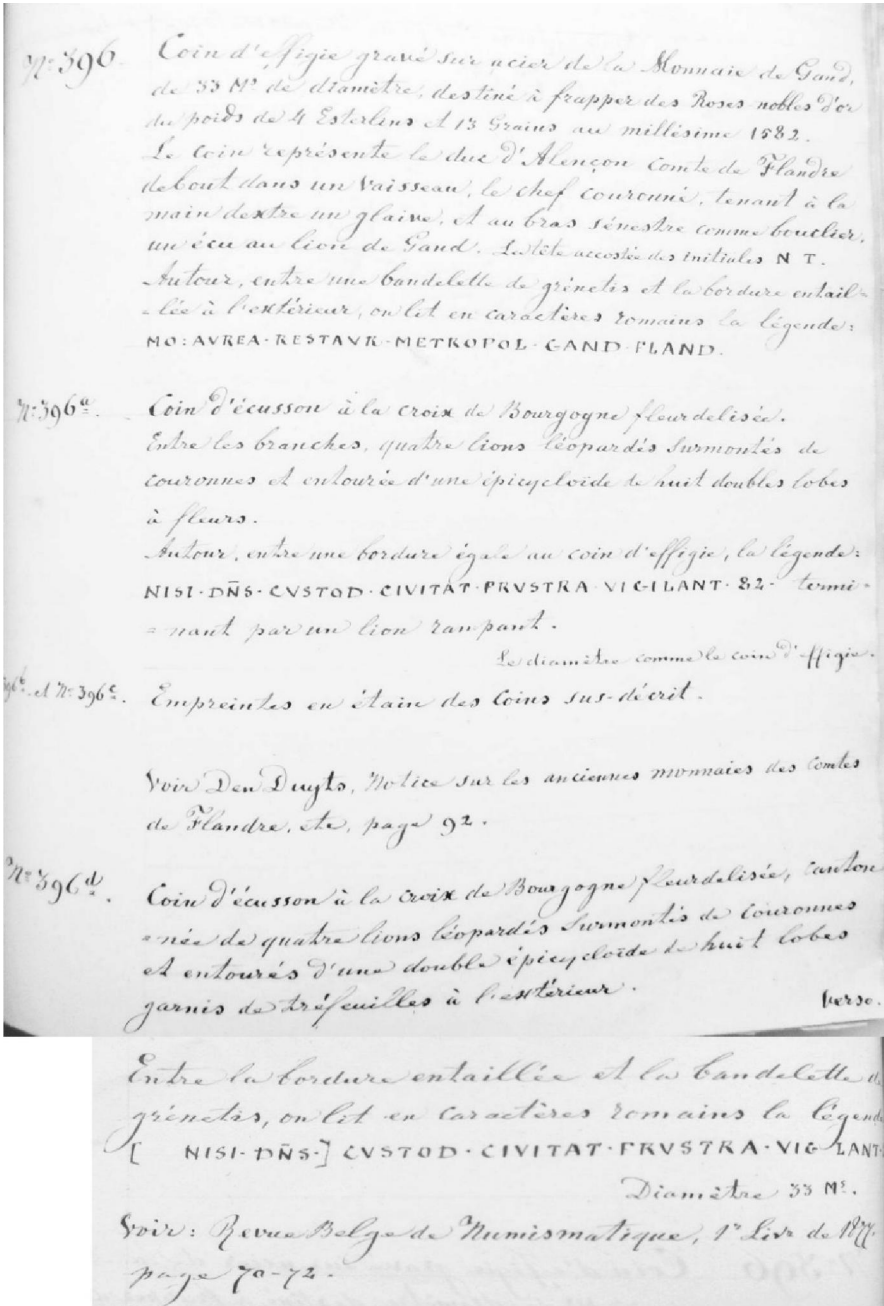 Nº 396. Coin d'effigie gravé sur acier de la Monnaie de Gand,
de 33 Mˢ de diamètre, destiné à frapper des Roses nobles d'or
du poids de 4 Esterlins et 13 Grains au millésime 1582.
Le coin représente le duc d'Alençon comte de Flandre
debout dans un Vaisseau, le chef couronné, tenant à la
main dextre un glaive, et au bras sénestre comme bouclier,
un écu au lion de Gand. La tête accostée des initiales N T.
Autour, entre une bandelette de grénetis et la bordure entail=
=lée à l'extérieur, on lit en caractères romains la légende:
MO: AVREA·RESTAVR·METROPOL·GAND·FLAND.
Nº 396ª. Coin d'écusson à la croix de Bourgogne fleurdelisée.
Entre les branches, quatre lions léopardés surmontés de
couronnes et entourée d'une épicycloïde de huit doubles lobes
à fleurs.
Autour, entre une bordure égale au coin d'effigie, la légende:
NISI·DÑS·CVSTOD·CIVITAT·FRVSTRA·VIGILANT·82· termi=
=nant par un lion rampant.
Le diamètre comme le coin d'effigie.
396ᵇ. et Nº 396ᶜ. Empreintes en étain des Coins sus-décrit.
Voir Den Duyts, Notice sur les anciennes monnaies des Comtes
de Flandre, etc, page 92.
Nº 396ᵈ. Coin d'écusson à la croix de Bourgogne fleurdelisée, canton
=née de quatre lions léopardés surmontés de couronnes
et entourés d'une double épicycloïde de huit lobes
garnis de tréfeuilles à l'extérieur.
Verso.
Entre la bordure entaillée et la bandelette de
grénetis, on lit en caractères romains la légende
[ NISI·DÑS·] CVSTOD·CIVITAT·FRVSTRA·VIG LANT·
Diamètre 33 Mˢ.
Voir: Revue Belge de Numismatique, 1ʳ Livr de 1877.
page 70-72.